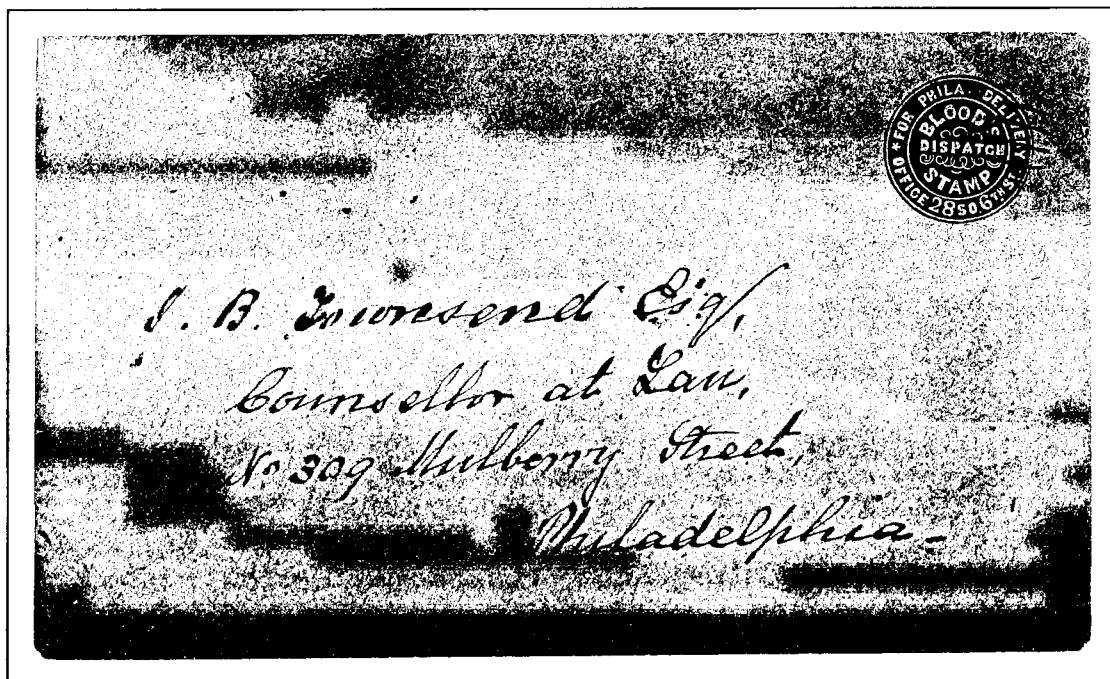 ★ FOR PHILA. DELIVERY
BLOOD'S
DISPATCH
STAMP
OFFICE 28 SO 6TH ST
J. B. Townsend Esq,
Counsellor at Law,
No 309 Mulberry Street,
Philadelphia -